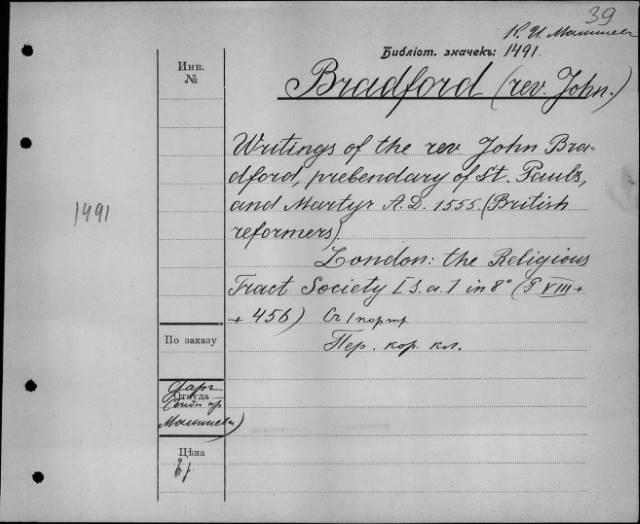 39
К. И. Малышев
Библіот. значекъ: 1491.
Инв.
№
Bradford (rev. John.)
Writings of the rev. John Bra-
dford, prebendary of St. Pauls,
and Martyr A.D. 1555. (British
reformers).
1491
London: the Religious
Tract Society [S. a.] in 8° (P VIII +
+ 456) Съ 1 портр.
По заказу
Пер. кор. кл.
Даръ
Откуда
Малышева)
Цѣна